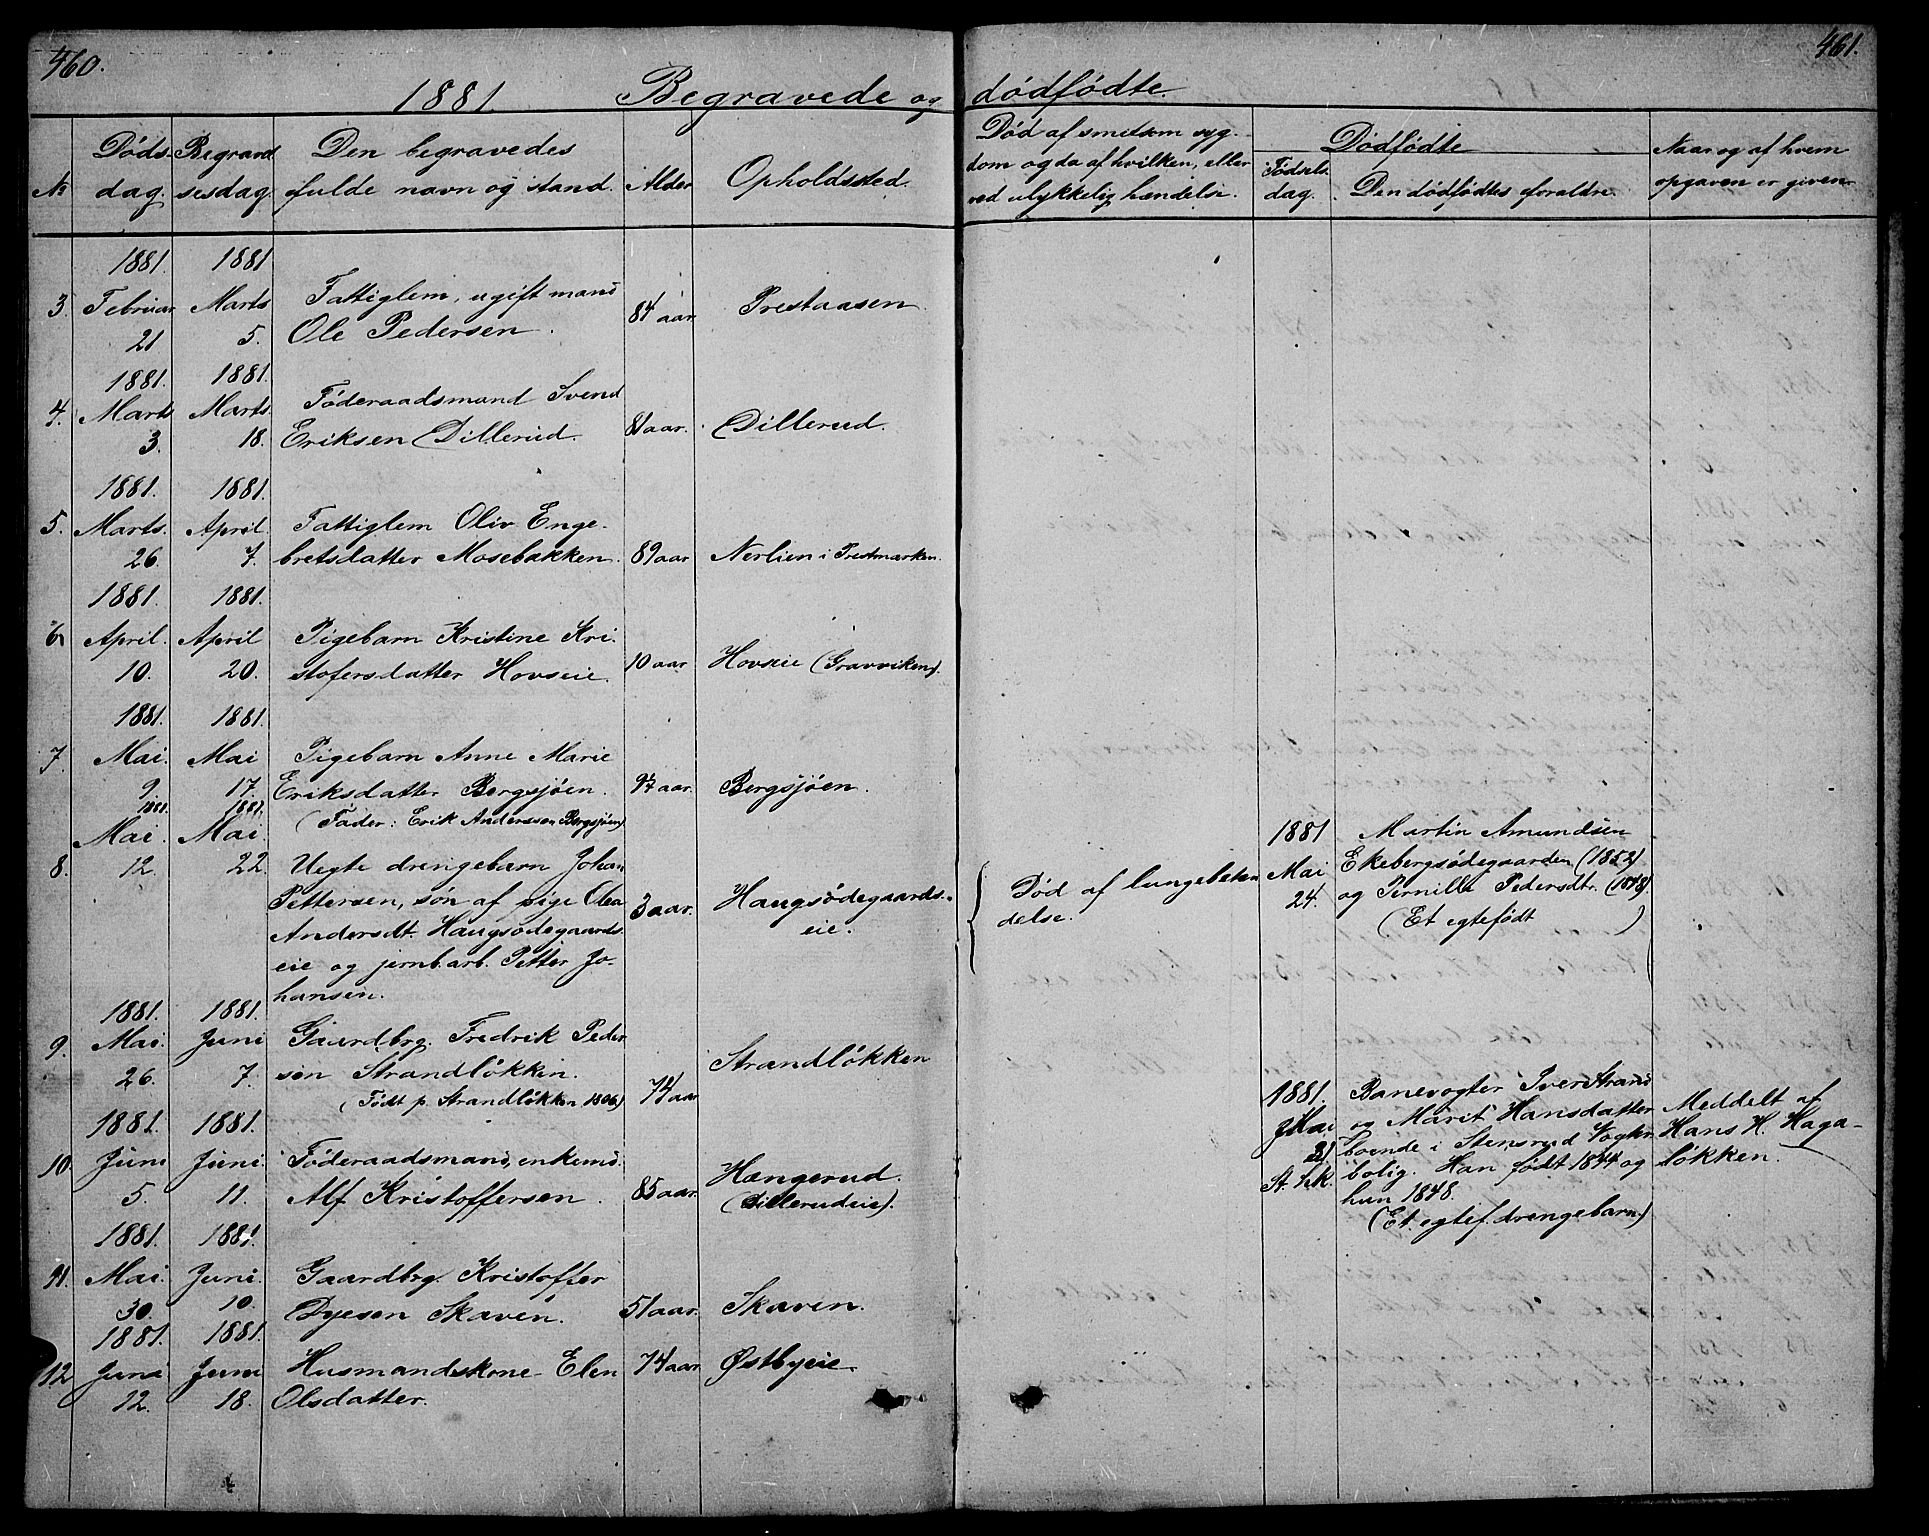 460.
1881 Begravede og
No
Døds-
dag.
Begravel
sesdag.
Den begravedes
fulde navn og stand.
Alder
Opholdssted.
3.
1881.
Februar
21
1881
Marts
5.
Fattiglem, ugift mand
Ole Pedersen.
84 aar
Prestaasen
4.
1881.
Marts
3.
1881.
Marts
18.
Føderaadsmand Svend
Eriksen Dillerud.
81 aar.
Dillerud.
5.
1881.
Marts.
26.
1881.
April.
7.
Fattiglem Oliv Enge-
bretsdatter Mosebakken.
89 aar
Nerlien i Prestmarken.
6
1881.
April.
10.
1881.
April
20.
Pigebarn Kristine Kri-
stofersdatter Hovseie.
10 aar
Hovseie (Gravviken).
7.
1881.
Mai.
9.
1881.
Mai
17.
Pigebarn Anne Marie
Eriksdatter Bergsjøen.
(Fader: Erik Anderssen Bergsjøen)
aar.
Bergsjøen.
8.
1881.
Mai
12.
1881.
Mai.
22.
Uegte drengebarn Johan
Pettersen, søn af pige Olea
Andersdt. Haugsødegaards-
eie og jernb.arb. Petter Jo-
hansen.
3 aar.
Haugsødegaards-
eie.
9.
1881.
Mai.
26.
1881.
Juni
7.
Gaardbrg. Fredrik Peder
sen Strandløkken.
(Født p. Strandløkken 1806)
74 aar
Strandløkken
10.
1881.
Juni
5.
1881.
Juni
11.
Føderaadsmand, enkemd.
Alf Kristoffersen.
85 aar.
Hængerud.
(Dillerudeie).
11.
1881.
Mai.
30.
1881.
Juni.
10.
Gaardbrg. Kristoffer
Dyesen Skaven.
51 aar.
Skaven.
12
1881.
Juni
12.
1881.
Juni
18.
Husmandskone Elen
Olsdatter.
74 aar
Østbyeie.
461.
dødfødte.
Død af smitsom syg-
dom og da af hvilken, eller
ved ulykkelig hændelse.
Dødfødte
Fødsels
dag.
Den dødfødtes foraldre.
Naar og af hvem
opgaven er given.
Død af lungebetæn
delse.
1881
Mai
24.
Martin Amundsen
Ekebergsødegaarden (1852)
og Pernille Pedersdtr. (1848)
(Et egtefødt )
1881.
Mai
21
St. h.k.
Banevogter Iver Strand
og Marit Hansdatter
boende i Stensrud Vogter
bolig. Han født 1844 og
hun 1848.
(Et egtef. drengebarn.)
Meddelt af
Hans H. Haga-
løkken.